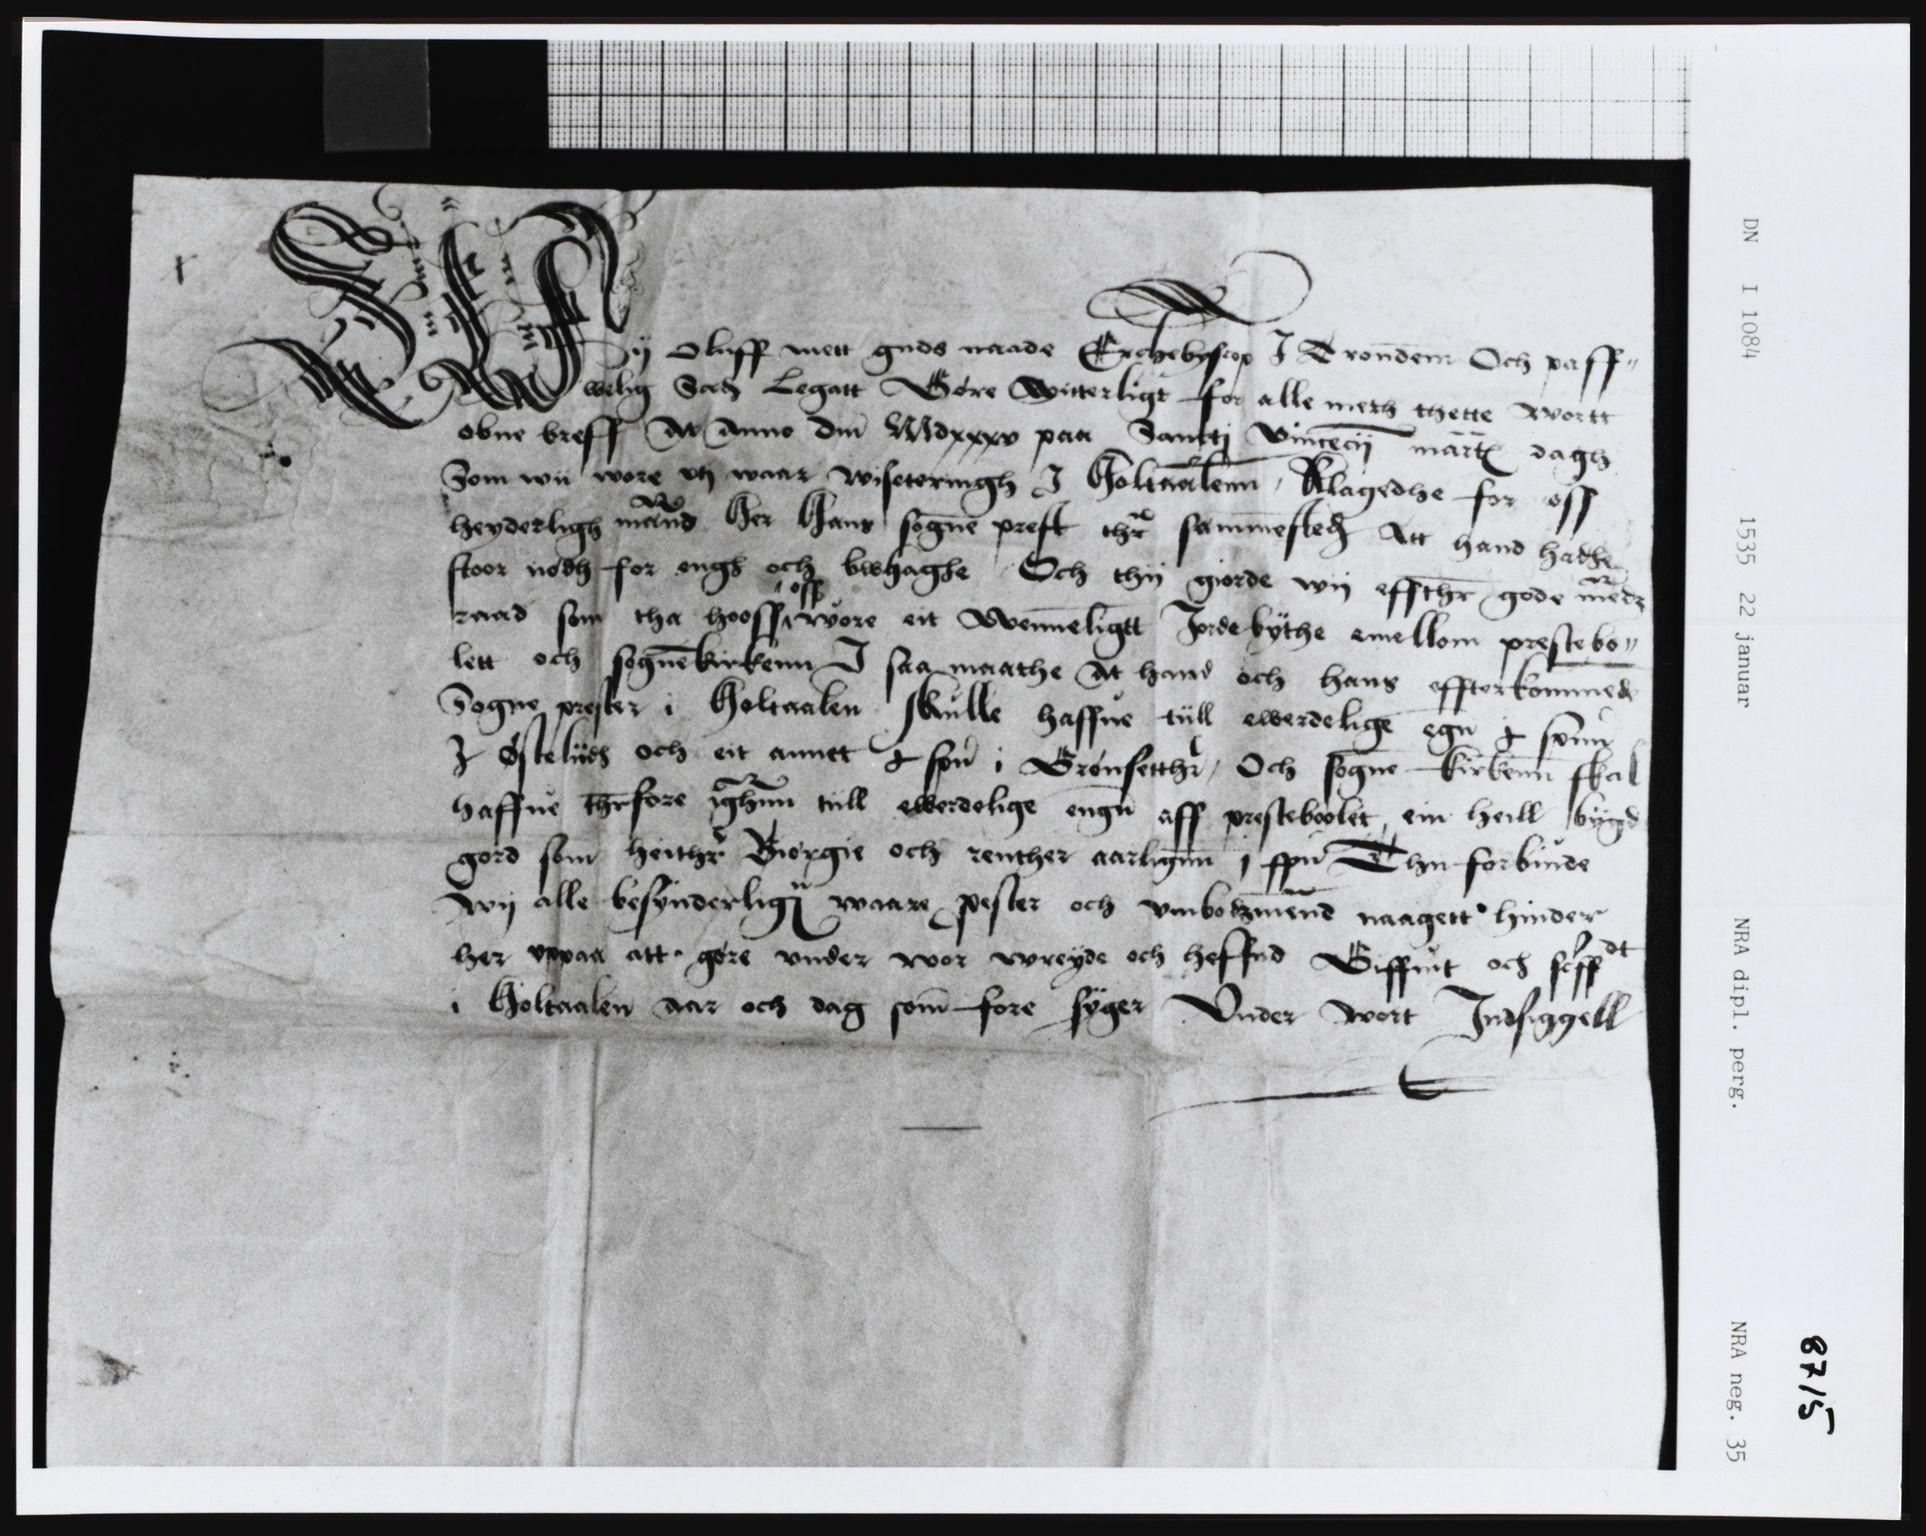 Wij Oluff mett guds naade Erchebyscop J Trondem Och paff„
welig Sædz Legatt Göre Witterligt for alle meth thette wortt
obne breff At Anno dm̄ Mdxxxv paa Sancti Vincēcij mārt dagh
Som wii wore vtj waar wiseteringh J Holtaalenn, Klagedhe for oss
heyderligh mānd Her Hans sogne prest thr sammestedz Att hand hadhe
stoor nödh for engh och bwhaghe Och thij giorde wij effthr gode medz
raad som tha hooss oss wore eit Wenneligtt Jordebÿthe emellom prestebo„
lett och sognekirkenn J saa maathe At hand och hans effterkommede
Sogne prester i Holtaalen skulle haffue tiill ewerdelige egn spnn
J Östeliidh och eit annet spn i Grönsetthr, Och sogne kirkenn skal
haffue thrfore ighnn tiill ewerdelige engn aff presteboolet, ein heill bÿgd
gord som heithr Biorgie och renther aarlignn j spn Thii forbinde
wij alle besÿnderlig waare pester och vmbodzmend naagett hinder
her vppaa att göre vnder wor wreÿde och heffnd Giffuit och scrffdt
i Holtaalen aar och dag som fore sÿger Vnder wort Jndsiggell
DN I 1084 1535 22 januar NRA dipl. perg. NRA neg. 35
87/5